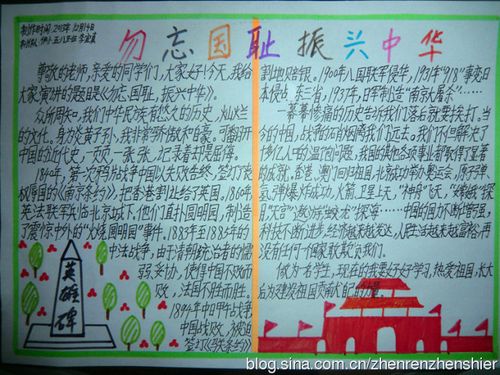 制作时间:2013年12月14日
勿忘国耻振兴中华
尊敬的老师,亲爱的同学们,大家好!今天,我给
大家演讲的题目是《勿忘国耻,振兴中华》。
众所周知,我们中华民族有悠久的历史,灿烂
的文化。身为炎黄子孙,我非常骄傲和自豪。可翻开
中国的近代史,一页一张张,记录着却是屈辱。
1840年,第一次鸦片战争中国以失败告终,签订了丧
权辱国的《南京条约》,把香港割让给了英国。1860年
英法联军攻占北京城下,他们直扑圆明园,制造
了震惊中外的"火烧圆明园"事件。1883年至1885年的
中法战争,由于清朝统治者的懦
弱、妥协,使得中国不败而
败,法国不胜而胜。
1894年中日甲午战争
中国战败,被迫
签订《马关条约》
英雄碑
割地赔银。1900年八国联军侵华,1931年"918"事变日
本侵占东三省,1937年,日军制造"南京大屠杀"……
一幕幕惨痛的历史告诉我们落后就要挨打。当
今的中国,战争的硝烟离我们远去。我们不但解决了
十多亿人口的温饱问题,我国的其他各项事业都取得了显著
的成就。香港、澳门回归祖国,北京成功举办奥运会,原子弹、
氢弹爆炸成功,火箭卫星上天,"神舟"飞天,
中国的国力不断增强,
科技不断进步,经济越来越发达,人民生活越来越富裕,再
没有任何一个国家敢欺负我们。
做为一名学生,现在的我要好好学习,热爱祖国,长大
后为建设祖国贡献自己的力量。
blog.sina.com.cn/zhenrenzhenshier